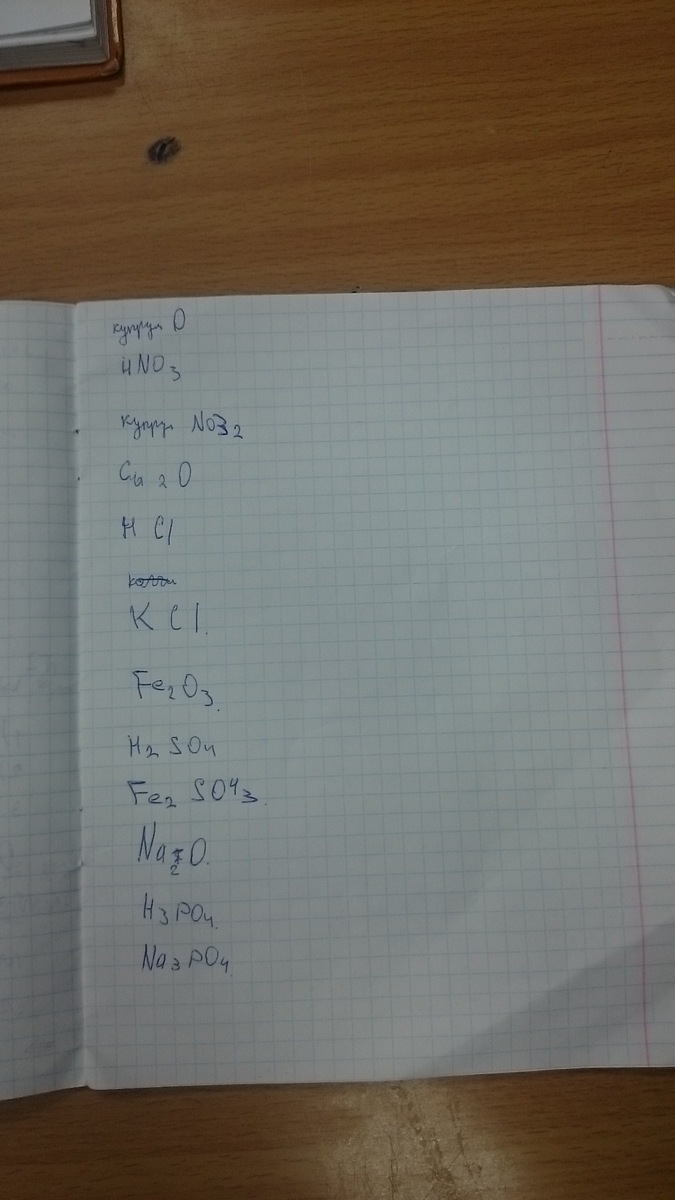 купрум O
HNO3
купру NO32
Cu 2 O
H Cl
K Cl.
Fe2O3.
H2 SO4
Fe2 SO43.
Na2O.
H3PO4.
Na3PO4